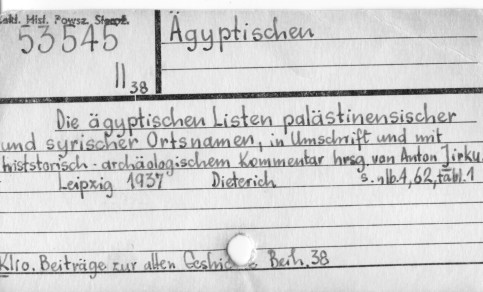 Zakł. Hist. Powsz. Staroż.
53545
II 38
Ägyptischen
Die ägyptischen Listen palästinensischer
und syrischer Ortsnamen, in Umschrift und mit
histstorisch-archäologischem Kommentar hrsg. van Anton Jirku
Leipzig 1937 Dieterich s. nlb. 4, 62, tabl. 1
Klio. Beiträge zur alten Geshic Beih. 38